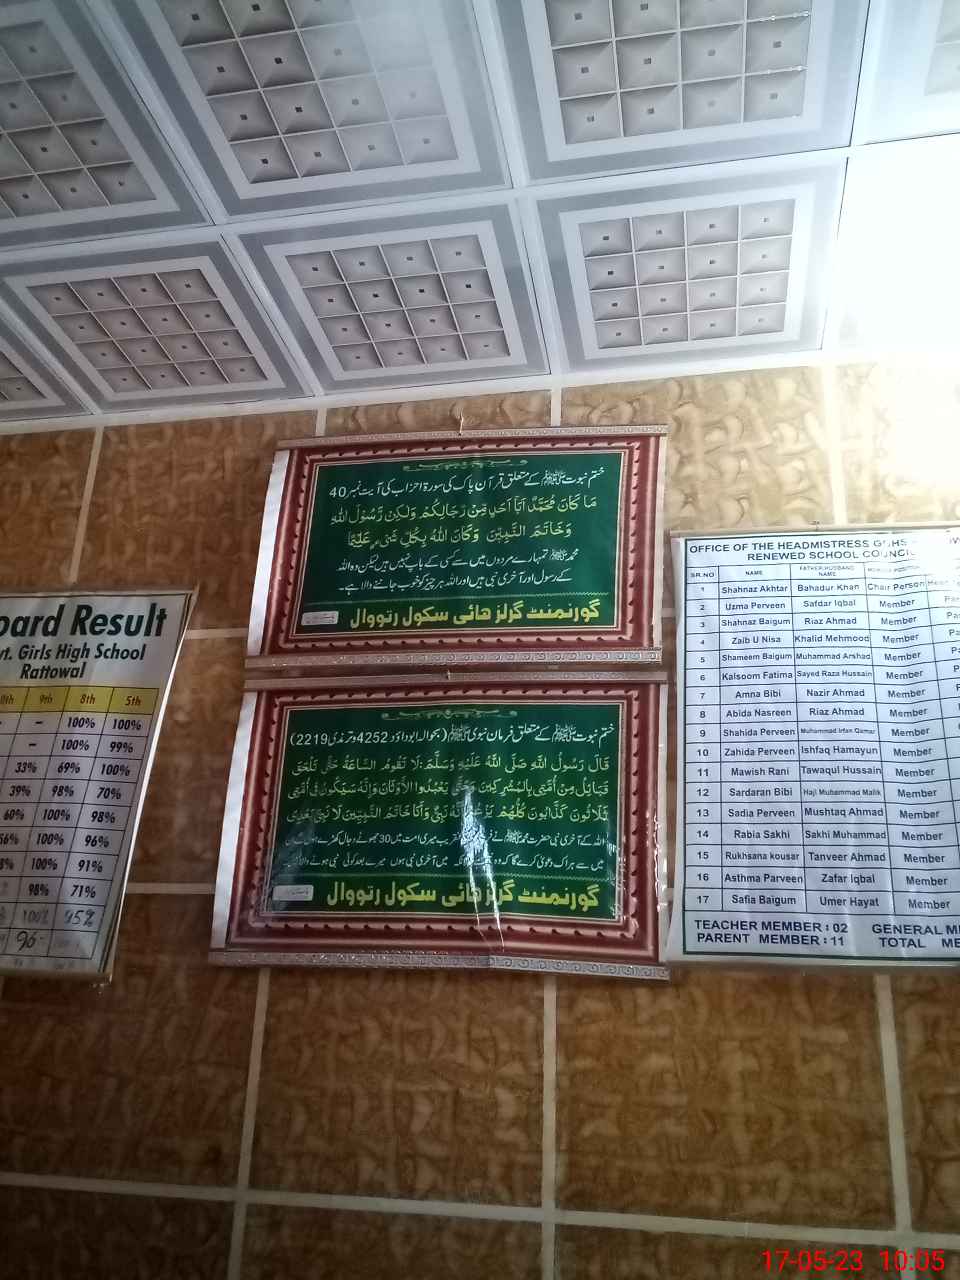 oard Result
vt. Girls High School
Rattowal
9th 8th 5th
– 100% 100%
– 100% 99%
33% 69% 100%
39% 98% 70%
60% 100% 98%
56% 100% 96%
100% 91%
98% 71%
100% 95%
96
ختم نبوت ﷺ کے متعلق قرآن پاک کی سورۃ احزاب کی آیت نمبر 40
مَا كَانَ مُحَمَّدٌ اَبَآ اَحَدٍ مِّنْ رِّجَالِكُمْ وَلٰكِنْ رَّسُوْلَ اللّٰهِ
وَخَاتَمَ النَّبِيّٖنَ وَكَانَ اللّٰهُ بِكُلِّ شَيْءٍ عَلِيْمًا
محمد ﷺ تمہارے مردوں میں سے کسی کے باپ نہیں ہیں لیکن وہ اللہ
کے رسول اور آخری نبی ہیں اور اللہ ہر چیز کو خوب جاننے والا ہے۔
گورنمنٹ گرلز ھائی سکول رتووال
ختم نبوت ﷺ کے متعلق فرمان نبوی ﷺ (بحوالہ ابوداؤد 4252 و ترمذی 2219)
قَالَ رَسُولُ اللّٰهِ صَلَّى اللّٰهُ عَلَيْهِ وَسَلَّمَ: لَا تَقُومُ السَّاعَةُ حَتّٰى تَلْحَقَ
قَبَائِلُ مِنْ اُمَّتِي بِالْمُشْرِكِيْنَ وَحَتّٰى يَعْبُدُوا الْاَوْثَانَ وَاِنَّهُ سَيَكُوْنُ فِي اُمَّتِي
ثَلَاثُونَ كَذَّابُونَ كُلُّهُمْ يَزْعُمُ اَنَّهُ نَبِيٌّ وَاَنَا خَاتَمُ النَّبِيّينَ لَا نَبِيَّ بَعْدِي
اللہ کے آخری نبی حضرت محمد ﷺ نے قریب میری امت میں 30 جھوٹے دجال
میں سے ہر اک دعویٰ کرے گا کہ وہ میں آخری نبی ہوں میرے بعد کوئی نبی ہونے والا
گورنمنٹ گرلز ھائی سکول رتووال
OFFICE OF THE HEADMISTRESS GGHS
RENEWED SCHOOL COUNCIL
SR.NO NAME FATHER/HUSBAND NAME
1 Shahnaz Akhtar Bahadur Khan Chair Person
2 Uzma Perveen Safdar Iqbal Member
3 Shahnaz Baigum Riaz Ahmad Member
4 Zaib U Nisa Khalid Mehmood Member
5 Shameem Baigum Muhammad Arshad Member
6 Kalsoom Fatima Sayed Raza Hussain Member
7 Amna Bibi Nazir Ahmad Member
8 Abida Nasreen Riaz Ahmad Member
9 Shahida Perveen Muhammad Irfan Qamar Member
10 Zahida Perveen Ishfaq Hamayun Member
11 Mawish Rani Tawaqul Hussain Member
12 Sardaran Bibi Haji Muhammad Malik Member
13 Sadia Perveen Mushtaq Ahmad Member
14 Rabia Sakhi Sakhi Muhammad Member
15 Rukhsana kousar Tanveer Ahmad Member
16 Asthma Parveen Zafar Iqbal Member
17 Safia Baigum Umer Hayat Member
TEACHER MEMBER : 02 GENERAL ME
PARENT MEMBER : 11 TOTAL ME
17-05-23 10:05